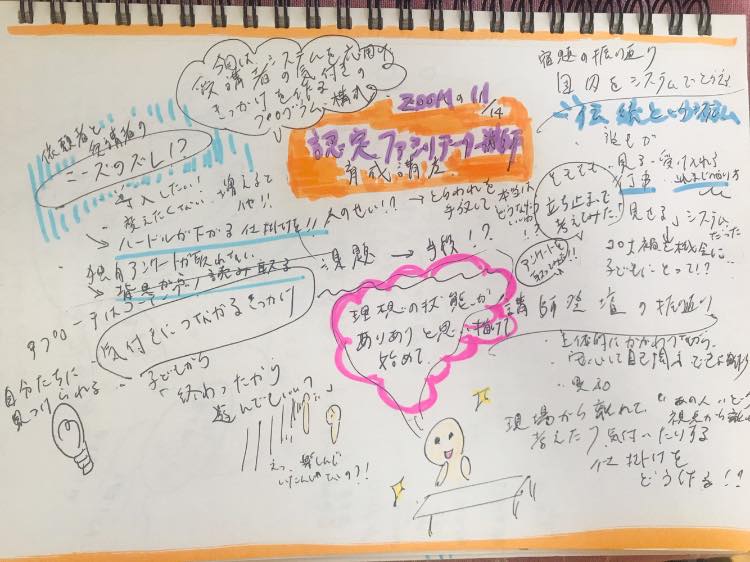 今回は
受講者システムを応用で
の気付きの
きっかけを作る
プログラム構成
ZOOMの11/14
認定ファシリテーター講師
育成講座
宿題の振り返り
国内をシステムでとらえる
伝統というシステム
誰もが
見る・受け入れる
行事
「見せる」システム
だった
コロナ禍を機会に…
子どもにとって!?
そもそも
立ち止まって
考えてみた!
依頼者と
受講者の
ニーズのズレ!?
導入したい!
変えたくない 増えるて
他!!
ハードルが下がる仕掛けを!!
独自アンケートが取れない
背景が
読み取る
アプローチは
気付きにつながるきっかけ
人のせい!? → とらわれを
手放して 本当は
どうなったら
いいか
!?
課題 → 手段!?
理想の状態が
ありありと思い描けて
始めて
講師登壇の振り返り
主体的にかかわりながら
安心して自己開示できる
見えた
現場から離れて
考えたり気付いたりする
仕掛けを
どう作る!?
"あの人"という
視点から離れ
自分たちに
見つけられる
子どもから
「終わったから
遊んでもいい?
えっ、楽しんで
いたんじゃないの?!